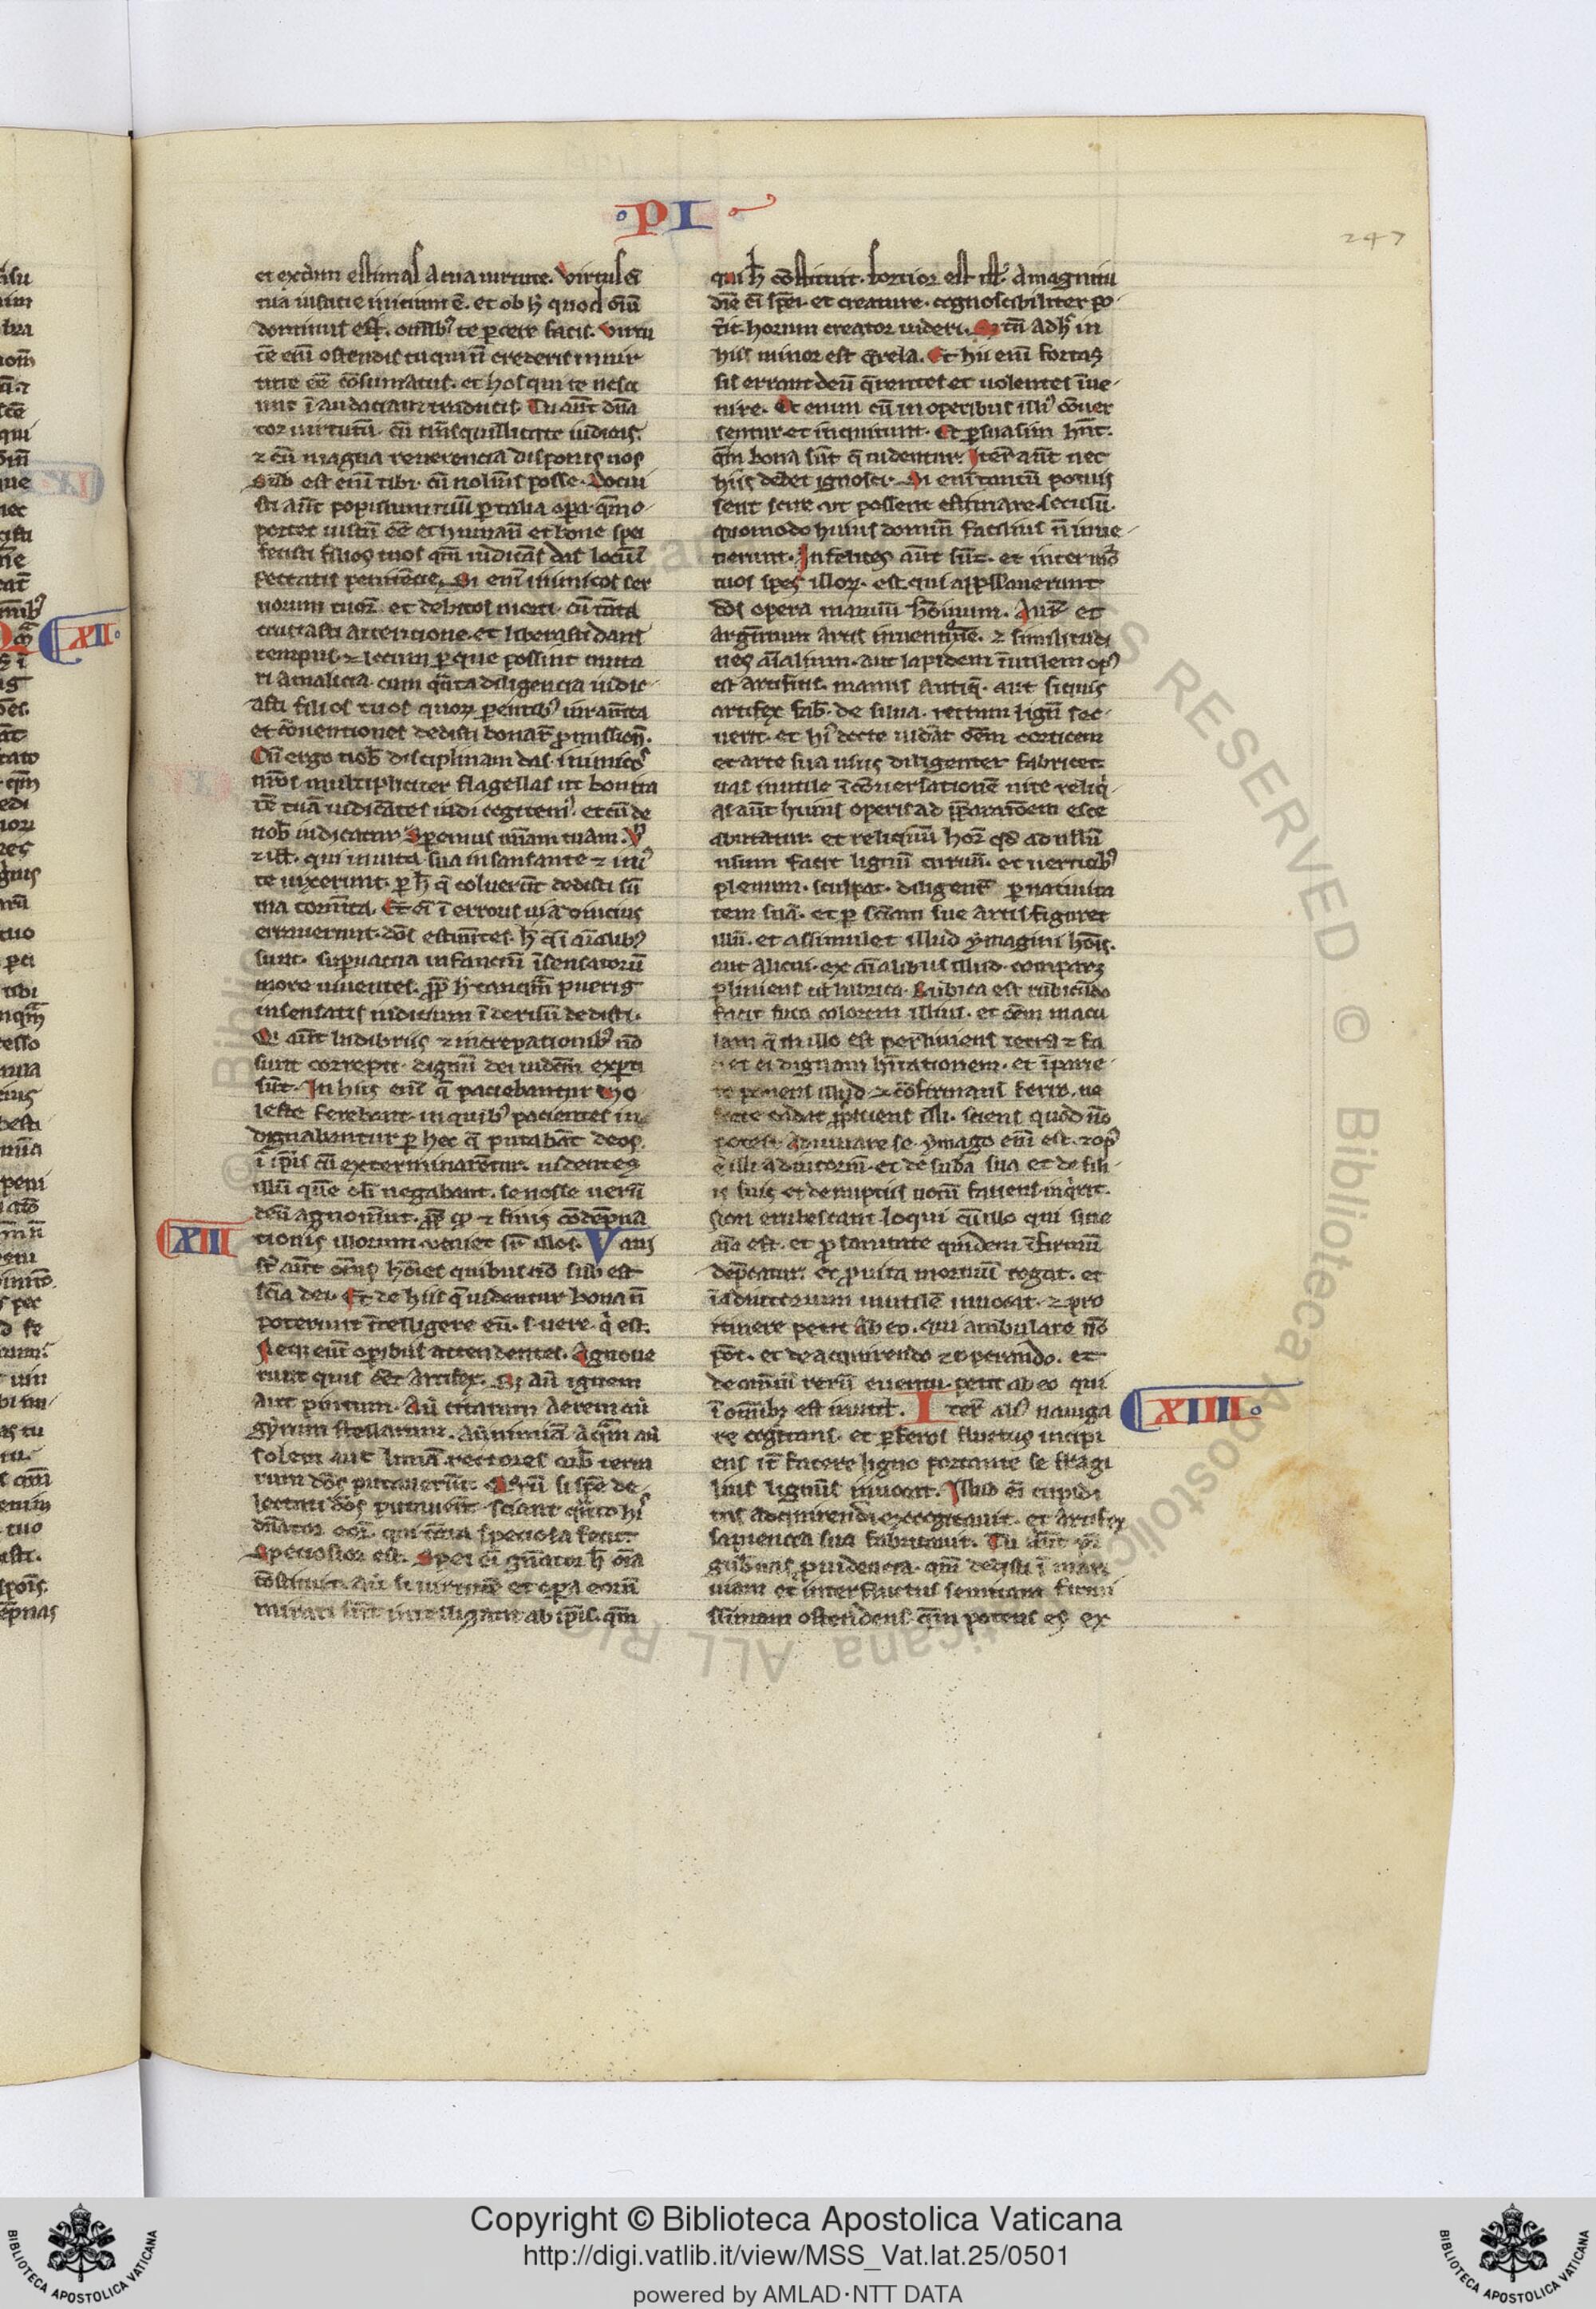 PI
247
et exclun estimas a tua uirtute. Virtus ei̅
tua iusticie inicium e̅. et ob hͦ quod oi̅u̅
dominus est. omib᷒ te ꝑcere facis. Virtu
te̅ eni̅ ostendis tu qui n̅ crederis in uir
tute e̅e̅ co̅sumatus. et hos qui te nesci
unt i̅ audaciam traducis. Tu aut̅ dn̅a
tor uirtutu̅. cu̅ tra̅squillitate iudicas.
⁊ cu̅ magna reuerencia disponis nos
Sub est eni̅ tibi cu̅ uolu̅is posse. Docui
sti aut̅ populum tuu̅ ꝑ talia oꝑa. qm̅ o
portet iustu̅ e̅e̅ et humanu̅ et bone spei
fecisti filios tuos qm̅ iudica̅s das locu̅ i̅
peccatis penite̅cie. Si eni̅ inimicos ser
uorum tuoꝝ et debitos morti cu̅ ta̅ta
cruciasti attencione. et liberasti dans
tempus ⁊ locum ꝑ que possint muta
ri a malicia. cum qu̅ta diligencia iudic
asti filios tuos quoꝝ parentib᷒ iurame̅ta
et co̅uentiones dedisti bonaꝝ ꝓmission̅.
Cu̅ ergo nob̅ disciplinam das inimicos
nr̅os multipliciter flagellas ut bonita
te̅ tua̅ iudica̅tes cogitem᷒. et cu̅ de
nob̅ iudicatur speremus mi̅am tuam. Vn̅
⁊ ill̅. qui in uita sua insensate ⁊ iniu᷒
te uixerunt. ꝑ h̅ q̅ coluerut̅ dedisti su̅
ma torme̅ta. Et ei̅ i̅ erroris uia diucius
errauerunt. deo̅s estima̅tes. h̅ q̅ i̅ ai̅alib᷒
sunt. superuacua infanciu̅ i̅sensatoru̅
more uiuentes. ꝓp̅ h̅ tanqm̅ pueris
insensatis iudicium i̅ derisu̅ dedisti.
Qi aut̅ ludibriis ⁊ increpationib᷒ no̅
sunt correpti. dignu̅ dei iudiciu̅ experti
su̅t. In hiis eni̅ q̅ paciebantur mo
leste ferebant. in quib᷒ pacientes in
dignabantur ꝑ hec q̅ putaba̅t deos.
i̅ ip̅is cu̅ exterminare̅tur. uidentes
illu̅ que̅ oli̅ negabant. se nosse ueru̅
deu̅ agnoueru̅t. ꝓp̅ qͦ ⁊ finis co̅de̅pna
XIII
tionis illorum ueniet su̅ illos. Vani
st̅ aut̅ om̅s ho̅ies quibus no̅ sub est
scia̅ dei. Et de hiis q̅ uidentur bona n̅
poterunt i̅telligere eu̅. s. uere q̇ est.
Neqꝫ eni̅ oꝑibus attendentes. Agnoue
runt quis e̅et artifex. Sꝫ au̅ ignem
aut spiritum. Au̅ citatum aerem au̅
gyrum stellarum. au̅ nimia̅ aqm̅ au̅
solem aut luna̅. rectores orb̅ terra
rum deo̅s putaueru̅t. Quoru̅ si spe̅ de
lectati deo̅s putaueru̅t. sciant qu̅to his
dn̅ator eoꝝ. qui tanta speciosa fecit.
Speciosior est. Spei ei̅ gn̅ator h̅ oi̅a
co̅stituit. au̅ si uirtute̅ et oꝑa eoru̅
mirati su̅t intelligant ab ip̅is. qm̅
qui h̅ co̅stituit. fortior est ill̅. a magnitu
die̅ ei̅ sp̅ei. et creature. cognoscibiliter po
t̅it. horum creator uideri. Set tn̅ adhᷓ in
hiis minor est q̅rela. Et hii eni̅ fortas
sis errant deu̅ q̅rentes et uolentes i̅ue
nire. Et enim cu̅ in operibus illi᷒ co̅uer
sentur et inquirunt. Et ꝑsuasum hn̅t.
qm̅ bona su̅t q̅ uidentur. Iter̅ aut̅ nec
hiis debet ignosci. Si eni̅ tantu̅ potuis
sent scire ut possent estimare seculu̅.
quomodo huius dominu̅ facilius n̅ inue
nerunt. Infelices aut̅ su̅t. et inter mo̅r
tuos spes illoꝝ. est. qui appellauerunt
deo̅s opera manuu̅ ho̅minum. Auꝝ et
arge̅tum artis inuentione̅. ⁊ similitudi
nes ai̅alium. aut lapidem i̅utilem op᷒
est artificis. manus antiq̅. aut si quis
artifex fab̅. de silua. rectum lignu̅ sec
uerit. et h᷒ docte rada̅t oe̅m corticem
et arte sua usus diligenter fabricet
uas inutile i̅ co̅uersatione̅ uite reliq̇
as aut̅ huius operis ad p̅parac̅oem esce
abutatur. et reliquu̅ hoꝝ qd̅ ad nullu̅
usum facit lignu̅ curuu̅. et uerticib᷒
plenum. sculpat. diligent̅ ꝑ uacuita
tem sua̅. et ꝑ scia̅m sue artis figuret
illu̅. et assimulet illud ymagini ho̅is.
aut alicui. ex ai̅alibus illud comparꝫ
ꝑliniens ut lubrica. Rubica est rubicu̅do
facit fuco colorem illius. et oe̅m macu
lam q̅ in illo est perliniens terra ⁊ fa
ciet ei dignam hitationem. et i̅ parie
te ponens illud ⁊ co̅firmans ferro. ne
forte cadat ꝓspiciens illi. sciens quod no̅
potest adiuuare se. ymago eni̅ est. ⁊ op᷒
e̅ illi adiutoriu̅. et de suba̅ sua et de fili
is suis et de nuptiis uotu̅ faciens inq̇rit.
Non erubescunt loqui cu̅ illo qui sine
ai̅a est. et ꝓ sanitate quidem i̅firmu̅
dep̅catur. et ꝓ uita mortuu̅ rogat. et
i̅ adiutorium inutile̅ inuocat. ⁊ pro
itinere petit ab eo. qui ambulare no̅
po̅t. et de acquirendo ⁊ operando. et
de omi̅u̅ reru̅ euentu. petit ab eo qui
XIIII
i̅ omib̅ꝫ est inutil̅. Iter̅ ali᷒ nauiga
re cogitans. et ꝑ feros fluctus incipi
ens it̅ facere ligno portante se fragi
lius lignu̅s inuocat. Illud ei̅ cupidi
tas adquirendi excogitauit. et artifex
sapiencia sua fabricauit. Tu aut̅ pr̅
gub̅nas ꝓuidencia. qm̅ dedisti i̅ mari
uiam et inter fluctus semitam firmi
ssimam ostendens. qm̅ potens es ex
XII
Copyright © Biblioteca Apostolica Vaticana
http://digi.vatlib.it/view/MSS_Vat.lat.25/0501
powered by AMLAD·NTT DATA
BIBLIOTECA APOSTOLICA VATICANA
BIBLIOTECA APOSTOLICA VATICANA